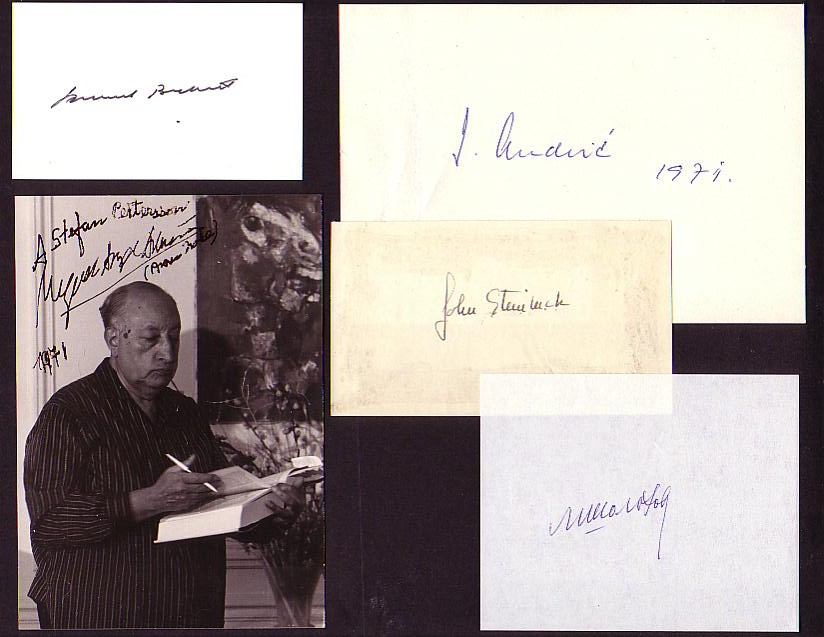 Samuel Beckett
I. Andrić
1971.
A Stefan Pettersson
Miguel Angel Asturias
1971
John Steinbeck
МШолохов